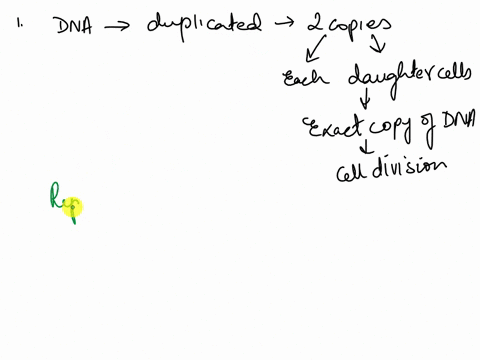 1. DNA → duplicated → 2 copies
Each daughter cells
Exact copy of DNA
cell division
Rep